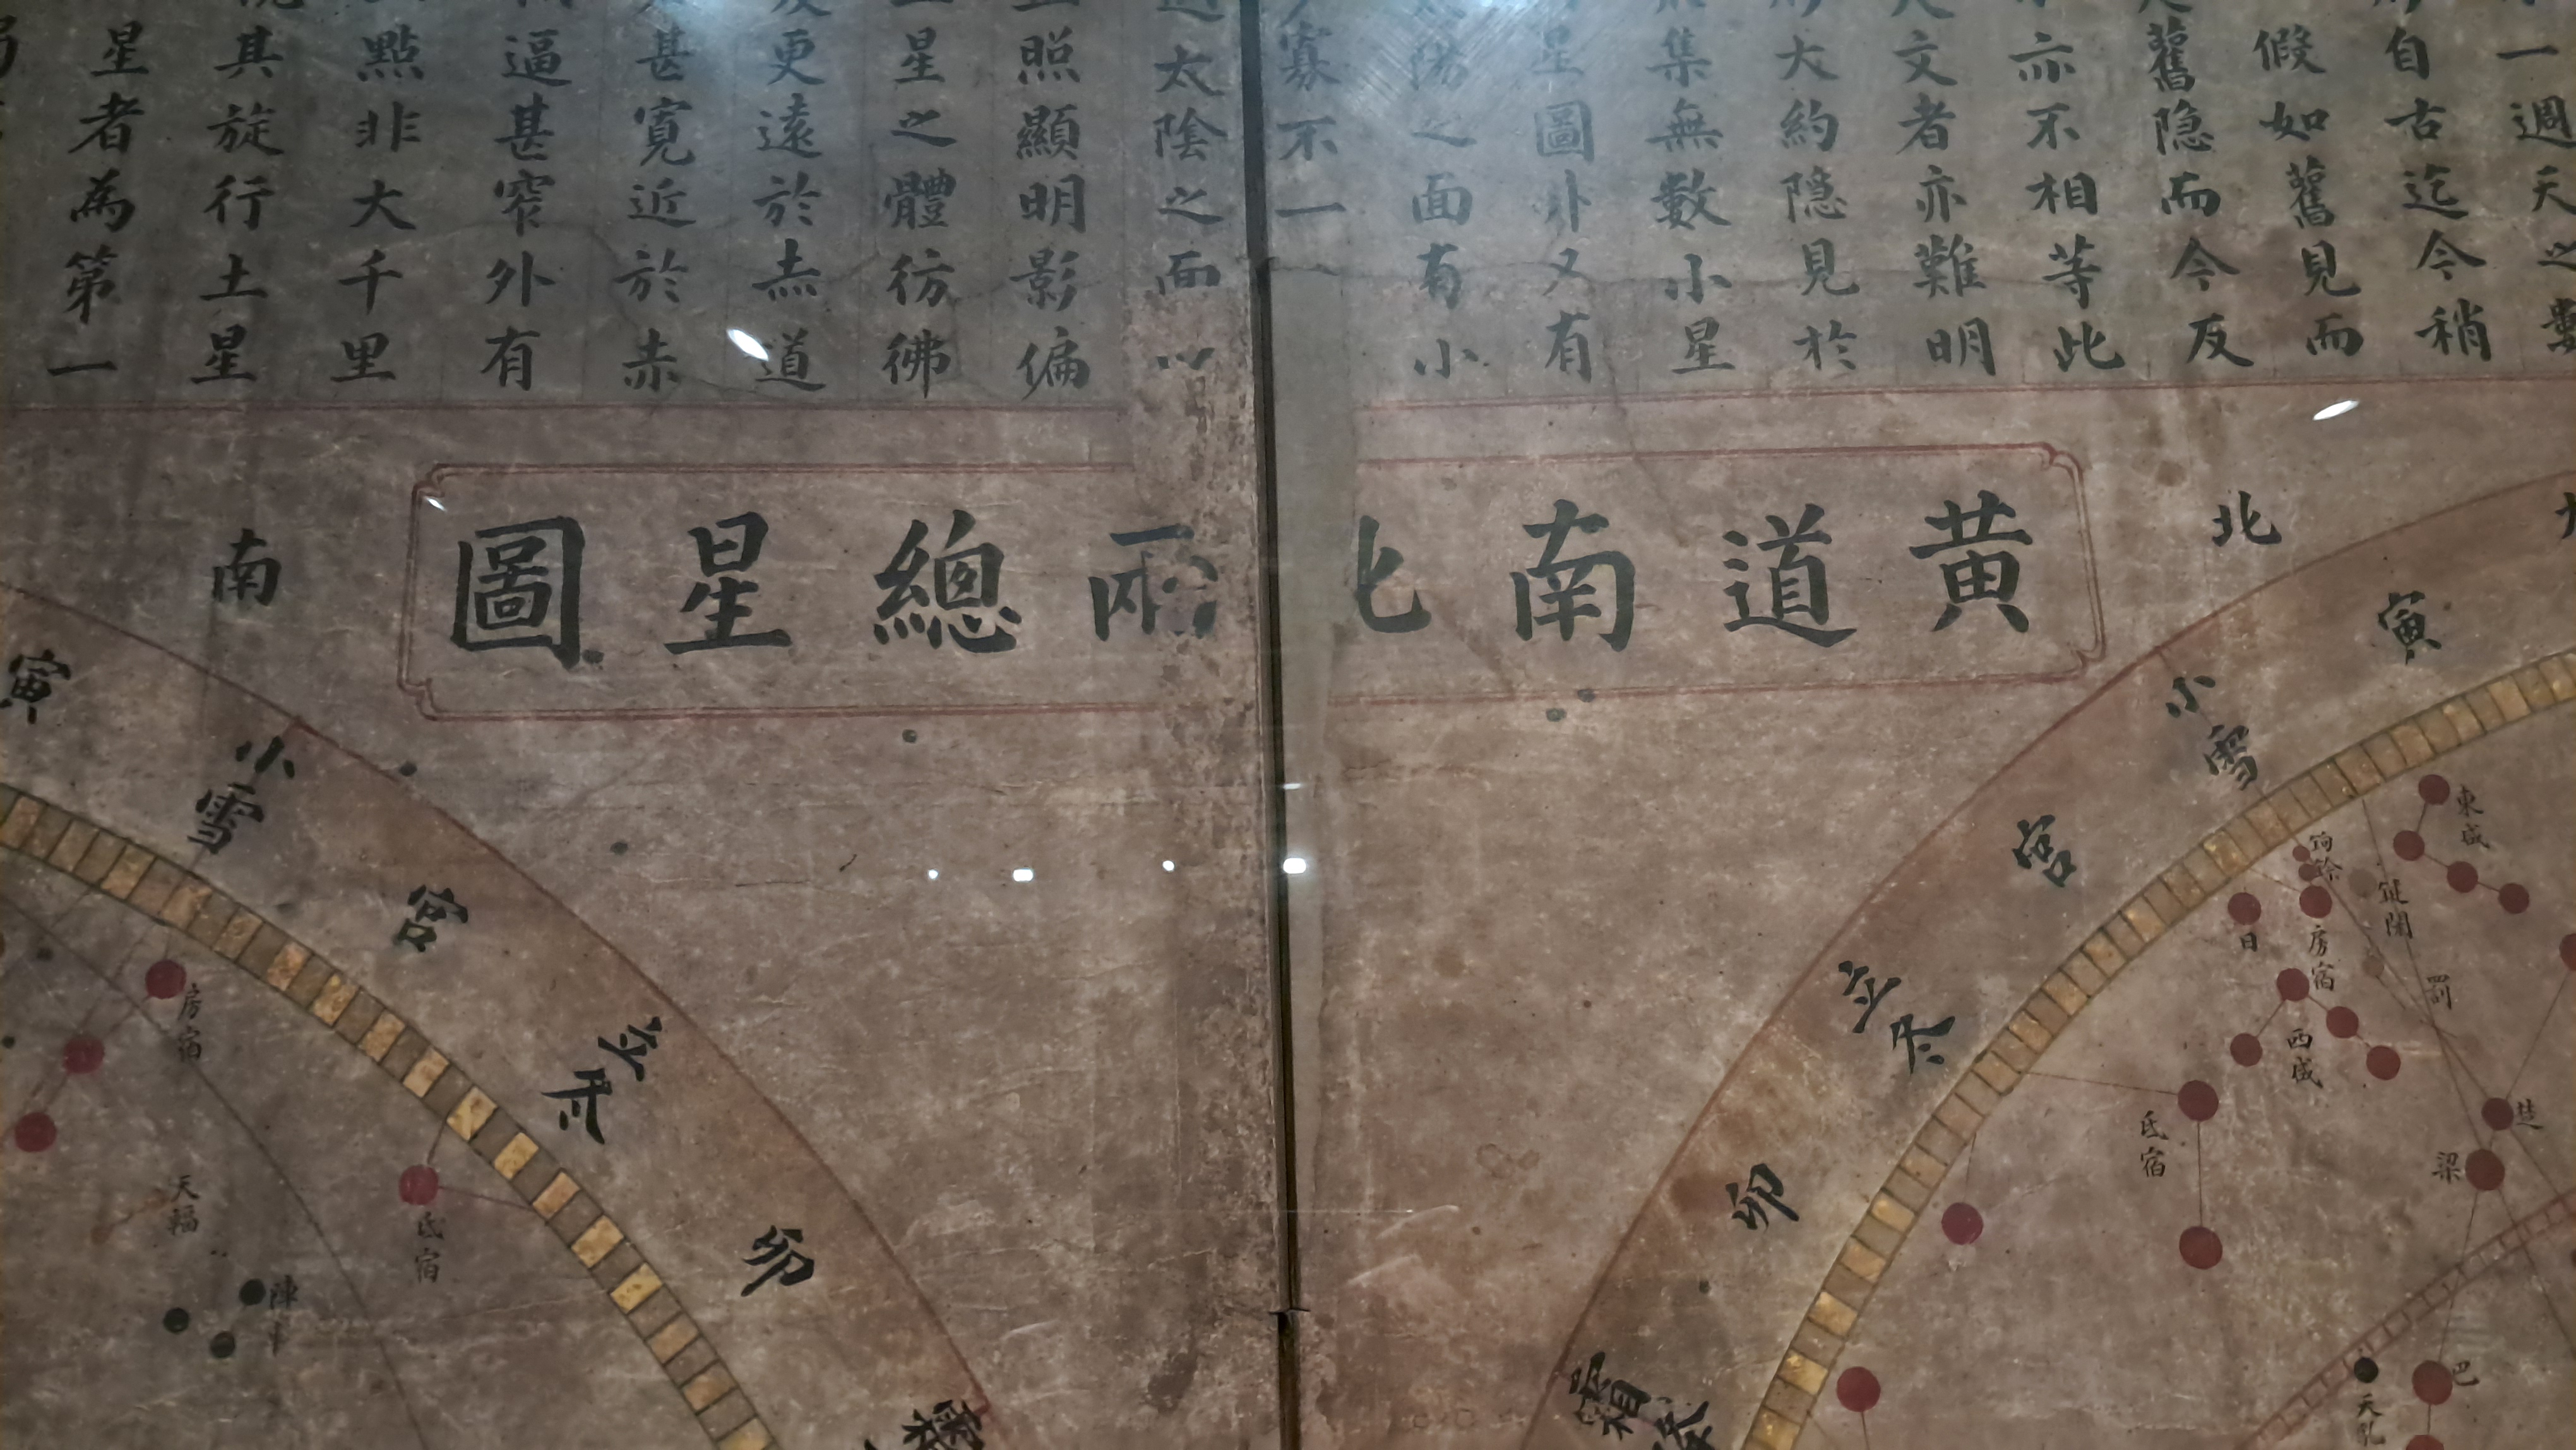 一週天之數
自古迄今稍
假如舊見而
舊隐而今反
亦不相等此
文者亦難明
大約隐見於
集無數小星
星圖外又有
陽之面有小
寡不一
太陰之面
照顯明影偏
星之體彷彿
更遠於赤道
甚寛近於赤
逼甚窄外有
點非大千里
其旋行土星
星者為第一
黄道南北兩總星圖
北
寅
小雪
宮
立冬
卯
霜
東咸
鈎鈐
鍵閉
日
房宿
罰
西咸
氐宿
楚
梁
巴
天乳
南
寅
小雪
宮
立冬
卯
房宿
氐宿
天輻
陣車